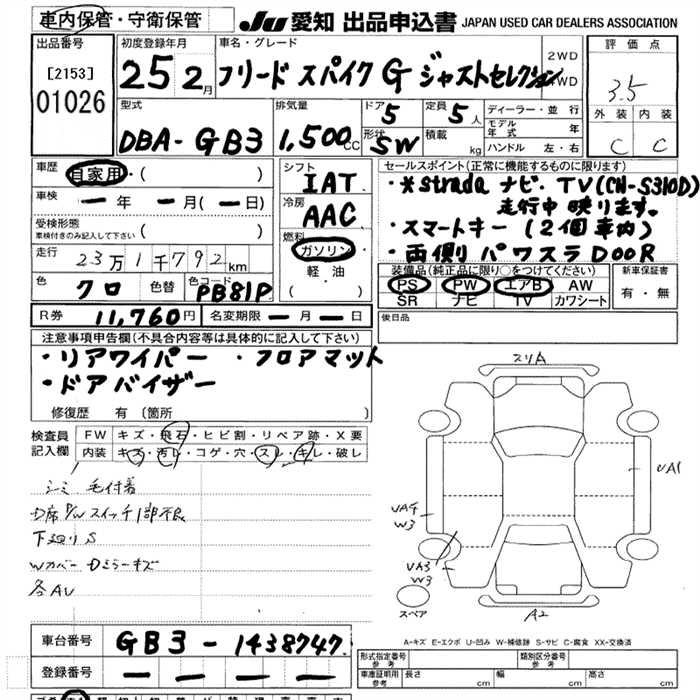 車内保管・守衛保管
JU 愛知 出品申込書 JAPAN USED CAR DEALERS ASSOCIATION
出品番号 初度登録年月 車名・グレード 2WD 評価点
[2153] 01026 25年 2月 フリード スパイク G ジャストセレクション 4WD 3.5
型式 排気量 ドア 5 定員 5人 ディーラー・並行 外装 内装
DBA-GB3 1,500cc 形状 SW 積載 kg モデル年式 年 ハンドル 左・右 C C
車歴 自家用・( ) シフト IAT セールスポイント(正常に機能するものに限ります)
・*strada ナビ・TV(CN-S310D)
走行中映ります。
車検 ー年ー月(ー日) 冷房 AAC
・スマートキー(2個車内)
受検形態 車検付きのみ記入して下さい ( ) 燃料 ガソリン
・両側パワスラDOOR
走行 23万1千792km 軽油 ( )
装備品(純正品に限り○をつけてください) 新車保証書
色 クロ 色替 色コード PB81P
PS PW エアB AW 有・無
SR ナビ TV カワシート
R券 11,760円 名変期限 ー月ー日 後日品
注意事項申告欄(不具合内容等は具体的に記入して下さい)
・リアワイパー ・フロアマット
・ドアバイザー
修復歴 有(箇所 )
検査員記入欄 FW キズ・飛石・ヒビ割・リペア跡・X要
内装 キズ・汚レ・コゲ・穴・スレ・キレ・破レ
シミ 毛付着
D席P/Wスイッチ1部不良
下廻りS
Wカバー Dミラーキズ
各AU
スリA
UA1
UA4
W3
UA3
W3
スペア
A2
A-キズ E-エクボ U-凹み W-補修跡 S-サビ C-腐食 XX-交換済
車台番号 GB3-1438747.
登録番号 ー ー ー ー
形式指定番号 参考 類別区分番号 参考
車庫証明用 参考 長さ cm 幅 cm 高さ cm